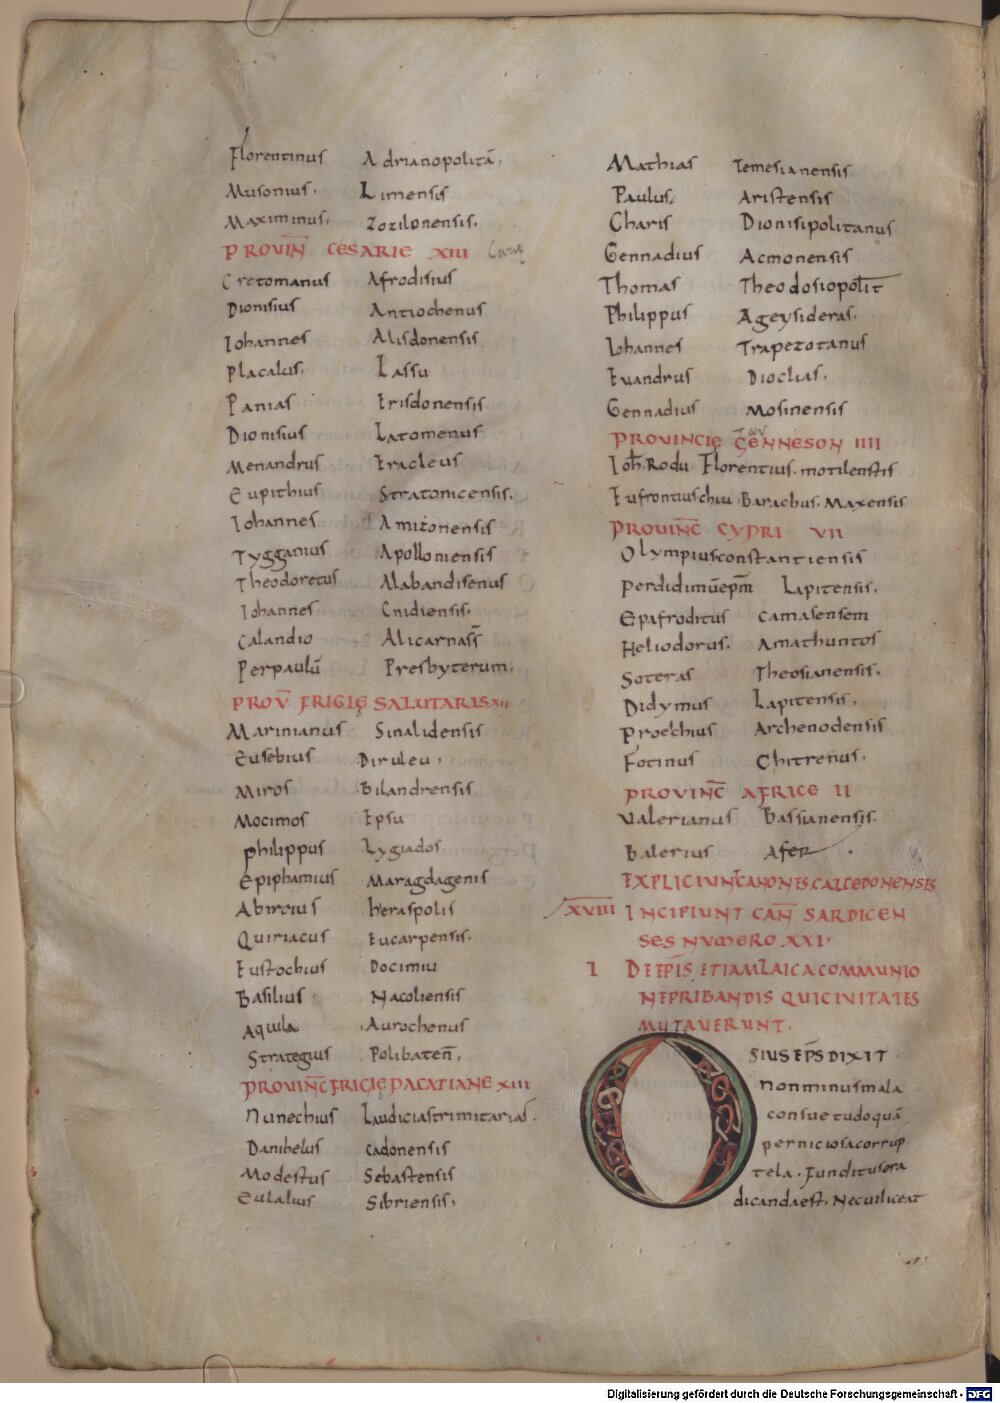 Florentinus Adrianopolitā.
Musonius. Limensis
Maximinus. Zozilonensis.
PROVIN̄ CESARIE XIII
Cretomanus Afrodisius
Dionisius Antiochenus
Iohannes Alisdonensis
Placalus. Lassu
Panias Erisdonensis
Dionisius Latomenus
Menandrus Eracleus
Eupithius Stratonicensis.
Iohannes Amizonensis
Tygganius Apolloniensis
Theodoretus Alabandisenus
Iohannes Cnidiensis.
Calandio Alicarnass̄
Perpaulū Presbyterum.
PROV̄ FRIGIĘ SALUTARIS XII
Marinianus Sinalidensis
Eusebius Diruleu.
Miros Bilandrensis
Mocimos Epsu
Philippus Lygiados
Epiphanius Maragdagenis
Abircius heraspolis
Quiriacus Eucarpensis.
Eustochius Docimiu
Basilius Nacoliensis
Aquila Aurochenus
Strategius Polibaten̄.
PROUINC̄ FRIGIĘ PACATIANE XIII
Nunechius Laudiciastrimitarias.
Danihelus Cadonensis
Modestus Sebastensis
Eulalius Sibriensis.
Mathias Temesianensis.
Paulus Aristensis
Charis Dionisipolitanus
Gennadius Acmonensis
Thomas Theodosiopolit̄
Philippus Ageysideras.
Iohannes Trapezotanus
Euandrus Dioclias.
Gennadius Mosinensis
τῶν
PROUINCIĘ GENNESON IIII
Ioh̄. Rodu. Florentius. motilenstis
Eufrontiuschiu. Barachus. Maxensis
PROUINC̄ CYPRI VII
Olympius constantiensis
Perdidimūepm̄ Lapitensis.
Epafroditus Camasensem
Heliodorus. Amathuntos
Soteras Theosianensis.
Didymus Lapitensis.
Proechius Archenodensis
Fotinus Chitrenus.
PROVINC̄ AFRICE II
Valerianus Bassianensis.
Balerius Afer.
EXPLICIUNT CANONES CALCEDONENSES
XVIII INCIPIUNT CAN̄ SARDICEN
SES NUMERO XXI.
I DE EPĪS ETIAM LAICA COMMUNIO
NE PRIBANDIS QUI CIVITATES
MUTAVERUNT.
OSIUS EPS̄ DIXIT.
Non minus mala
consuetudo quā
perniciosa corrup
tela. Funditus era
dicanda est. Ne cui liceat
Digitalisierung gefördert durch die Deutsche Forschungsgemeinschaft - DFG